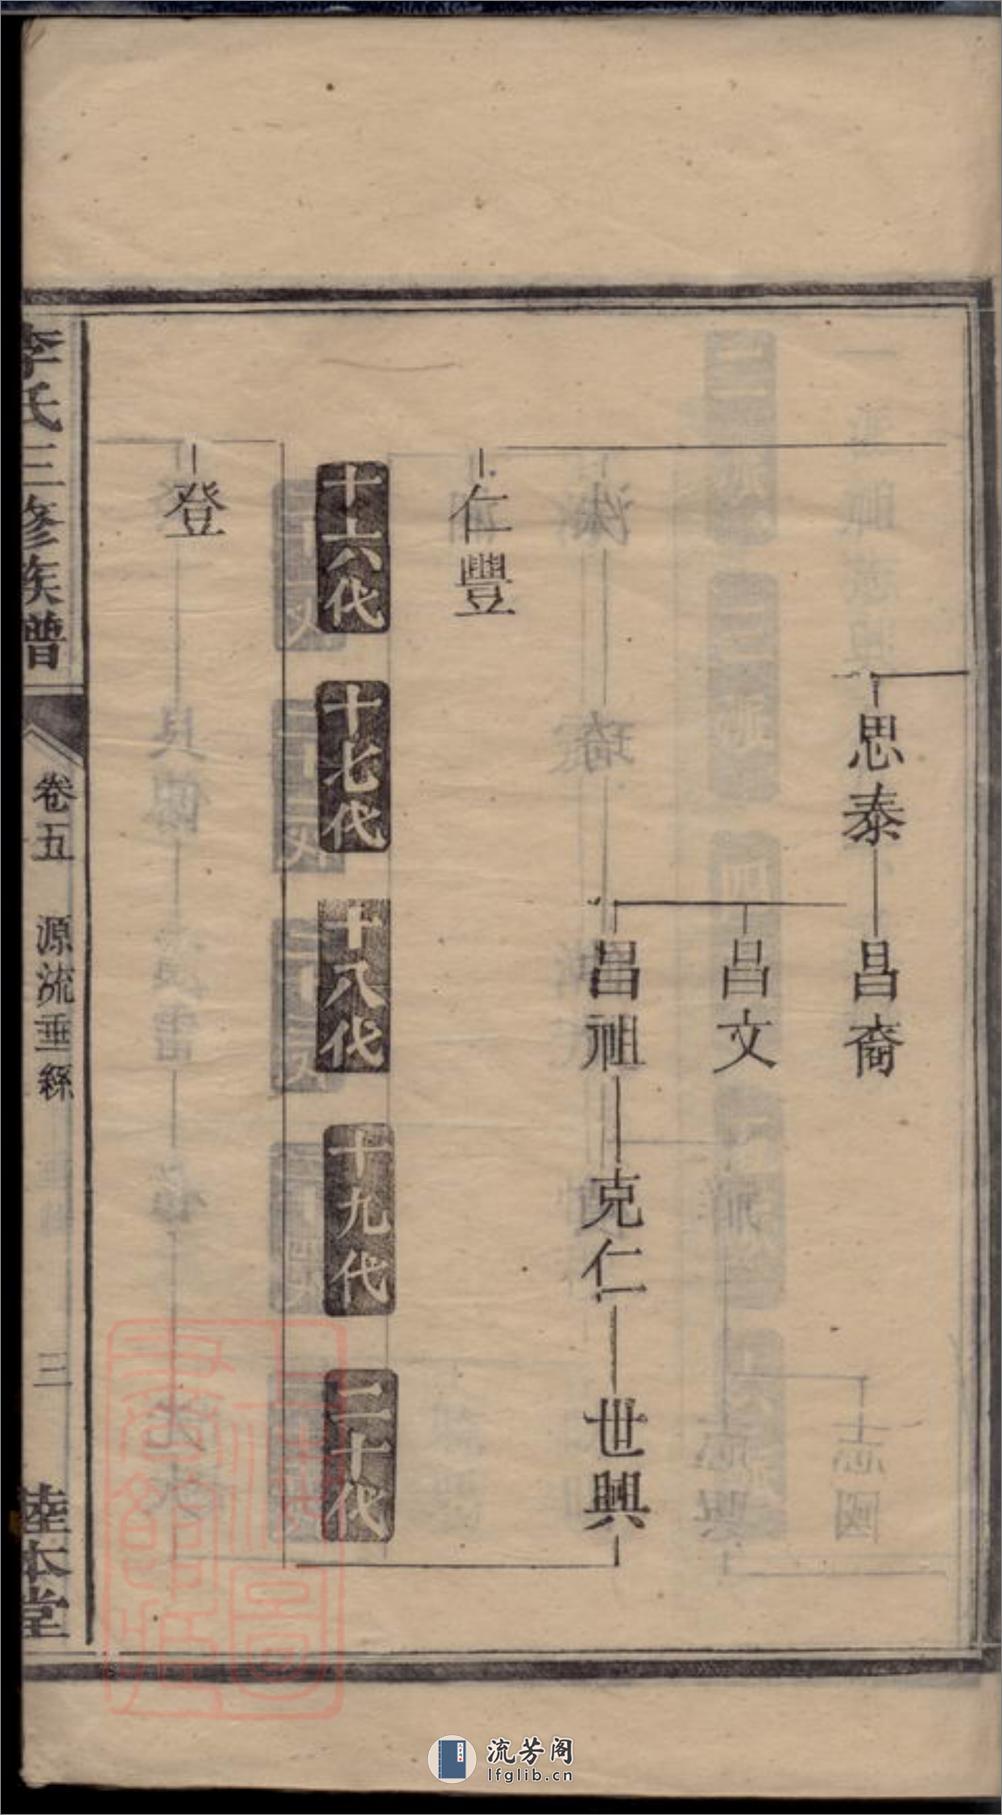 思泰
昌裔
昌文
昌祖
克仁
世興
仁豐
十六代
十七代
十八代
十九代
二十代
登
李氏三修族譜
卷五
源流垂絲
三
陸本堂
流芳阁
lfglib.cn